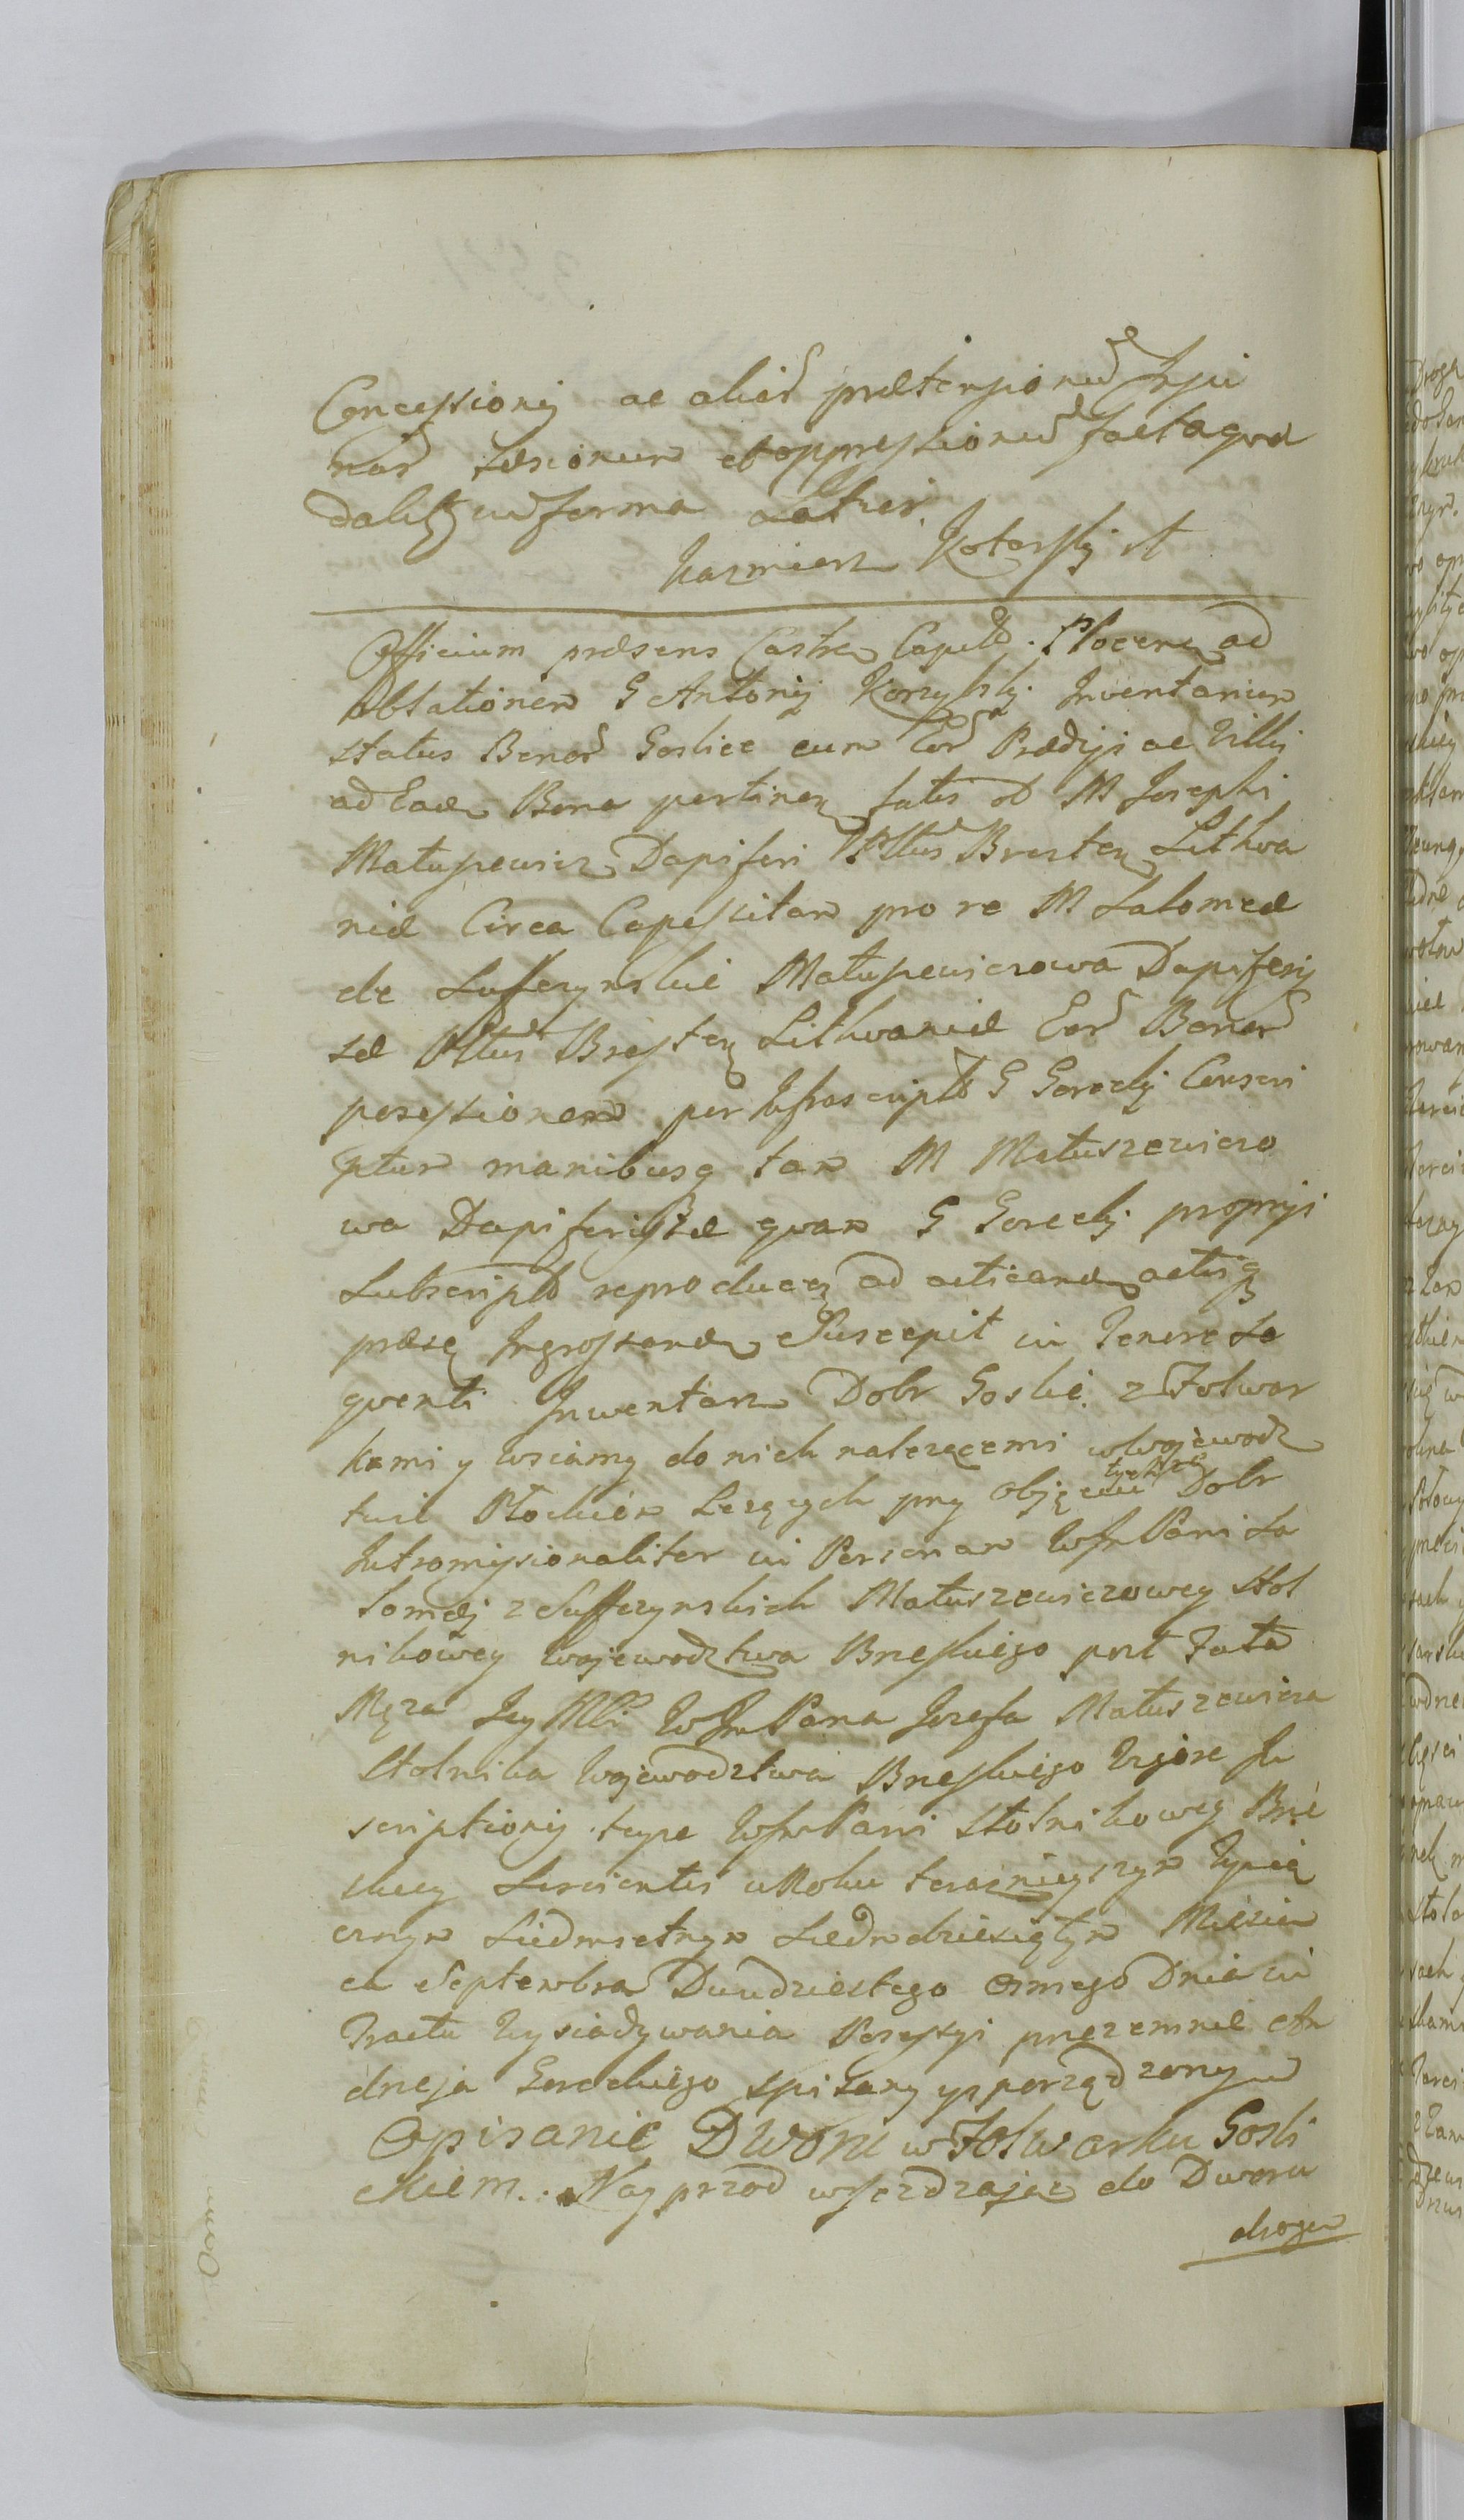 Concessionis ac alias prætensionũ Inju
rias Læsionum et oppressionũ factaqva
Kazmierz Koterski
Officium præsens Castren Capitl. Plocen ad
Oblationem G Antonij Inventarium
status Bonor Goslice cum Eor Prædijs ac Villis
ad Eadem Bona pertinen fatis M Josephi
Matuszewicz Dapiferi Pttus Bresten Lithva
niæ Circa Capessitam pro re M Salomeæ
de Suffczynskie Matuszewiczowa Dapiferis
sæ Pttus Bresten Lithvaniæ Eor Bonor
possessionem per Infrascriptū G Gorecky Conscri
ptum manibusq tam M Matuszewiczo
wa Dapiferissæ qvam G Gorecky proprijs
Subscriptū reproducen ad acticand actisq
præsen Ingrossand Suscepit in Tenore Se
qventi Inwentarz Dobr Goslic z Folwar
kami y wsciamy do nich nalezącemi w Wojewodz
twie Płockiem Lezących przy Objęciu tychże Dobr
Intromissionaliter in Personam WJm Pani Sa
lomej z Suffczynskich Matuszewiczowey Stol
nikowey Wojewodztwa Brzeskiego post Fata
Męza Jey WJm Pana Jozefa Matuszewicza
Stolnika Wojewodztwa Brzeskiego Vigore In
scriptionis teyze WJm Pani Stolnikowey Brze
skiey Servientis w Roku teraznieyszym Tysią
cznym Siedmsetnym Siedmdziesiątym Miesią
ca Septembra Dwudziestego osmego Dnia in
Tractu Wysiadywania Possessyi przezemnie An
drzeja Goreckiego spisany y sporządzony
Opisanie Dworu w Folwarku Gosli
ckiem. Nayprzod wjezdzając do Dworu
drogą